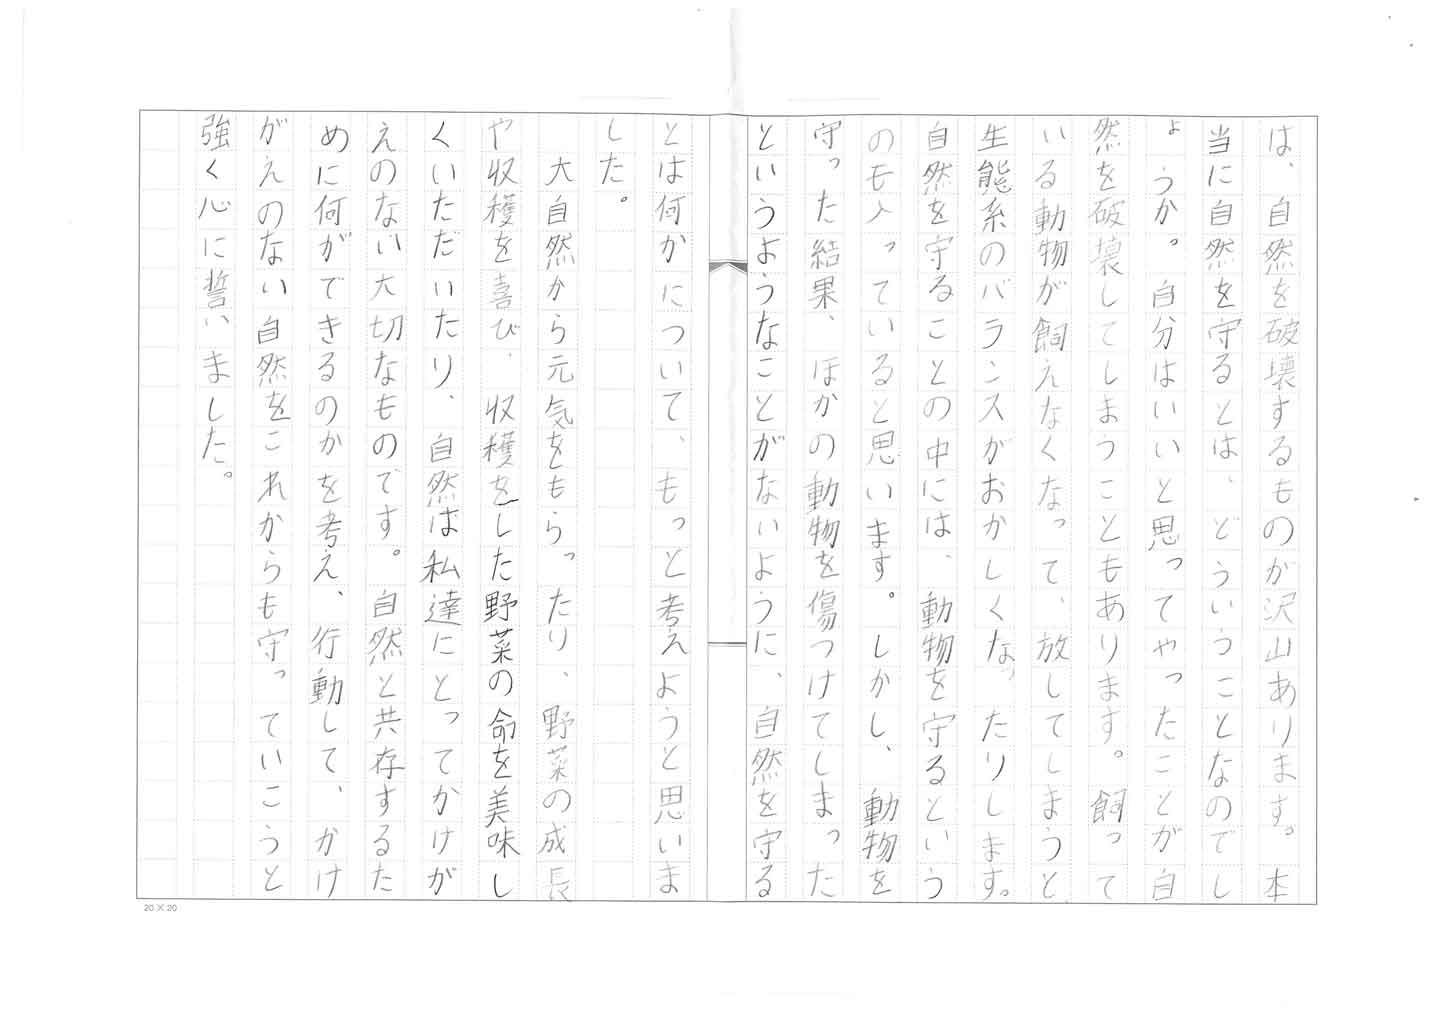 は、自然を破壊するものが沢山あります。本
当に自然を守るとは、どういうことなのでし
ょうか。自分はいいと思ってやったことが自
然を破壊してしまうこともあります。飼って
いる動物が飼えなくなって、放してしまうと、
生態系のバランスがおかしくなったりします。
自然を守ることの中には、動物を守るという
のも入っていると思います。しかし、動物を
守った結果、ほかの動物を傷つけてしまった
というようなことがないように、自然を守る
とは何かについて、もっと考えようと思いま
した。
大自然から元気をもらったり、野菜の成長
や収穫を喜び、収穫をした野菜の命を美味し
くいただいたり、自然は私達にとってかけが
えのない大切なものです。自然と共存するた
めに何ができるのかを考え、行動して、かけ
がえのない自然をこれからも守っていこうと
強く心に誓いました。
20×20